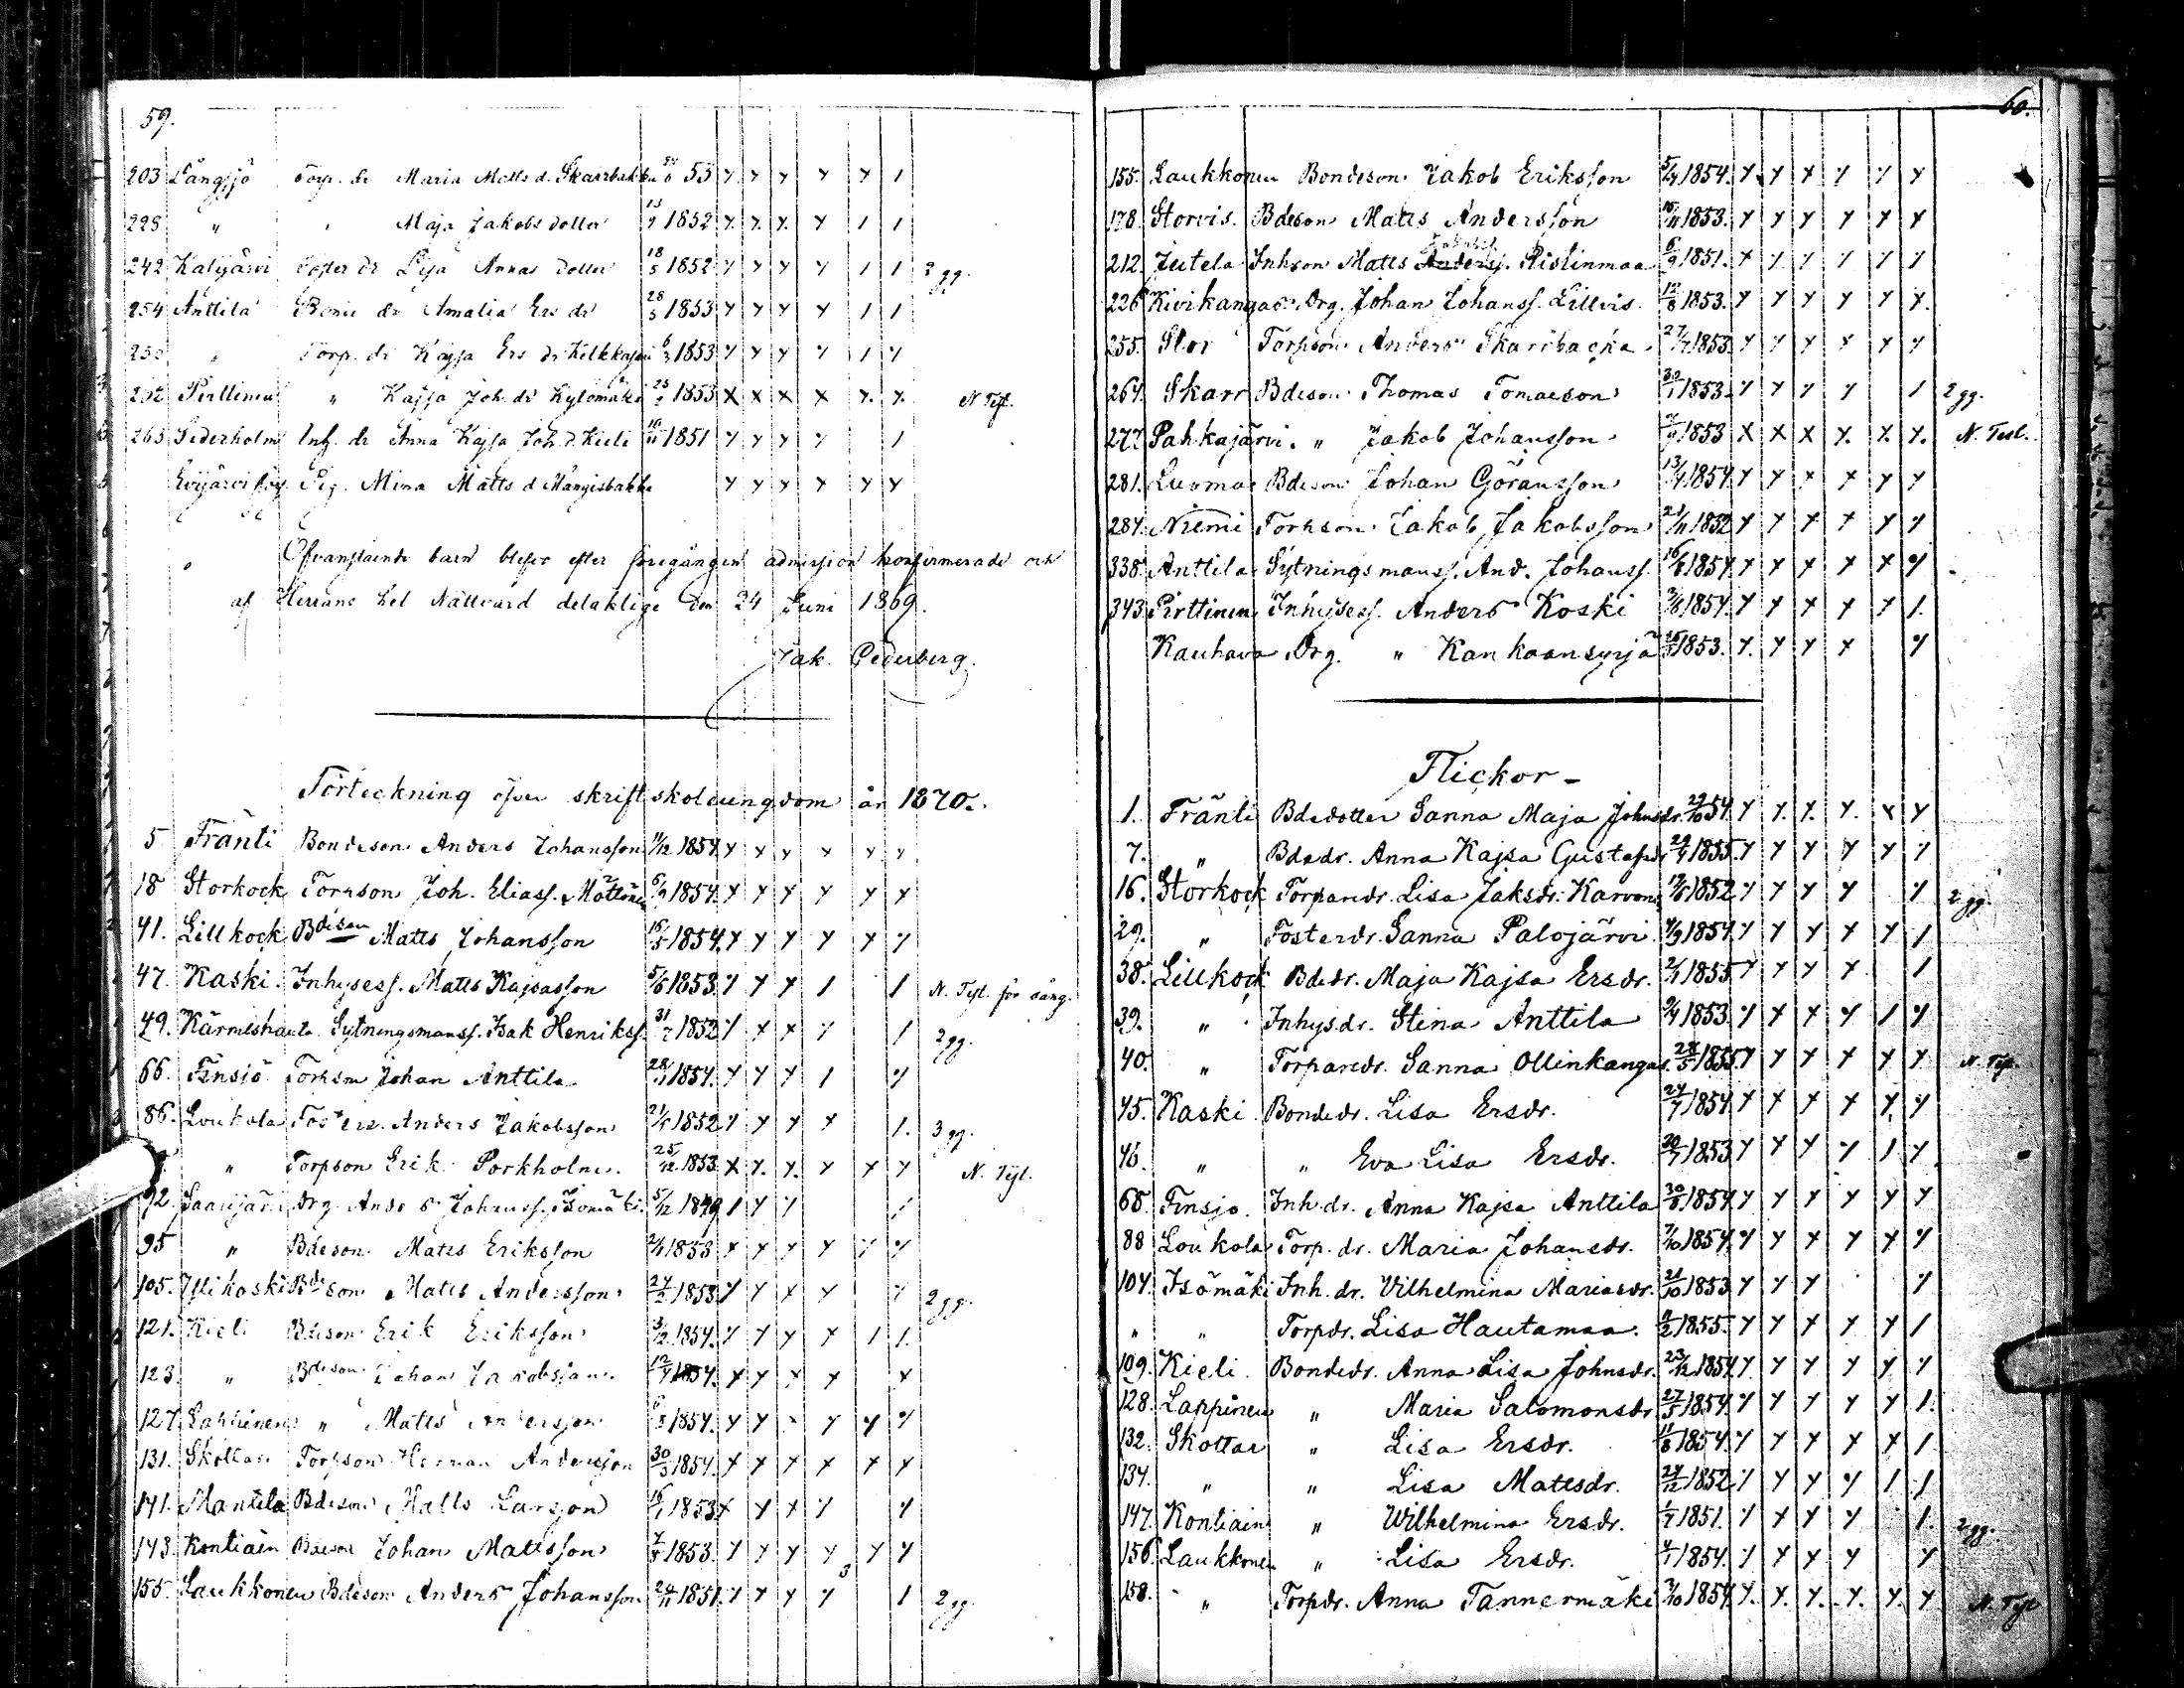 59.
203 Långsjö Torp. dr Maria Matts d. Skarrbakka 1853 y y y y y 1
228 " " Maja Jakobs dotter 13/7 1852 y y y y 1 1
242 Kalijärvi Foster dr Lisa Annas dotter 18/5 1852 y y y y 1 1 3 gg.
254 Anttila Bonde dr Amalia Ers dr 28/5 1853 y y y y 1 1
" Torp. dr Kajsa Ers dr 1853 y y y y 1 y
Pirttinen " Kajsa Joh. dr Kylömäki 1853 x x x x y. y. N. Test.
265 Sederholm Inh. dr Anna Kajsa Joh. d. Kieli 10/11 1851 y y y y 1
Evijärvi Pig. Mina Matts d. Mangisbakka y y y y y y
Ofvanstående barn blefvo efter föregången admission konfirmerade och
af Herrans hel. Nattvard delaktige den 24 Juni 1869.
Jak. Cederberg.
Förteckning öfver skriftskolungdom år 1870.
5 Fränti Bondeson Anders Johansson 11/12 1854. y y y y y y
18 Storkock Torpson Joh. Eliass. Möttönen 6/9 1854. y y y y y y
41. Lillkock Bdeson Matts Johansson 16/5 1854. y y y y y y
47. Kaski. Inhysess. Matts Kajsasson 5/6 1853. y y y 1 1 N. Test. för sång.
49. Kärmeshauta Sytningsmanss. Isak Henrikss. 31/7 1852 y x x y 1 2 gg.
66. Finsjö Torpson Johan Anttila 1854. y y y 1 y
86. Loukola Fosters. Anders Jakobsson 1852 y y y y 1. 3 gg.
" Torpson Erik Porkholm. 25/12 1853. x y. y. y y y N. Test.
92. Saarijärvi Drg. Anders Johanss. Isomäki. 5/12 1849 1 y y 1
95 " Bdeson Matts Eriksson 1853 y y y y y y
105. Ylikoski Bdeson Matts Andersson 24/2 1853 y y y y y 2 gg.
121. Kieli Bdeson Erik Eriksson 3/12. 1854. y y y y 1 1.
123. " Bdeson Johan Jakobsson. 1854. y y y y y
127. Lappinen " Matts Andersson 1854. y y y y y y
131. Skottar Torpson Herman Andersson 30/3 1854. y y y y y y
141. Mantila Bdeson Matts Larsson 16/1 1853 y y y y y
143. Kontiain Bdeson Johan Mattsson 1853. y y y y y y
155. Laukkonen Bdeson Anders Johansson 24/11 1851. y y y y 1 2 gg.
60.
155. Laukkonen Bondeson Jakob Eriksson 5/4 1854. y y y y y y
178. Storvis. Bdeson Matts Andersson 10/11 1853. y y y y y y
212. Jeitela Inhson Matts Anderss. Ristinmaa 6/9 1851. y y y y y y
226. Kivikangas Drg. Johan Johanss. Lillvis. 12/8 1853. y y y y y y.
255. Stor Torpson Anders Skarrbacka. 1853. y y y y y y
264. Skarr Bdeson Thomas Tomaeson 30/1 1853. y y y y 1 2 gg.
277. Pahkajärvi. " Jakob Johansson 1853 x x x y. y. y. N. Test.
281. Luoma Bdeson Johan Göransson 13/4 1854 y y y y y y
284. Niemi Torpson Jakob Jakobsson 21/11 1852 y y y y y y
338. Anttila Sytningsmanss. And. Johanss. 1854. y y y y y y
343. Pirttinen Inhysess. Anders Koski 1854. y y y y y 1.
Kauhava Drg. " Kankaansyrjä 1853. y. y y y y
Flickor-
1. Fränti Bdedotter Sanna Maja Johnsdr. 29/10 54. y y. y. y. y y
7. " Bdedr. Anna Kajsa Gustafsdr 1855. y y y y y y
16. Storkock Torparedr. Lisa Jaksdr. Karvonen 1852 y y y y y 2 gg.
29. " Fosterdr. Sanna Palojärvi 4/9 1854 y y y y y 1
38. Lillkock Bdedr. Maja Kajsa Ersdr. 1855 y y y y 1
39. " Inhysdr. Stina Anttila 1853. y y y y 1 y
40. " Torparedr. Sanna Ollinkangas. 28/5 1855 y y y y y y. N. Test.
45. Kaski Bondedr. Lisa Ersdr. 24/7 1854 y y y y y y
46. " " Eva Lisa Ersdr. 20/7 1853 y y y y 1 y
65. Finsjo. Inh. dr. Anna Kajsa Anttila 30/8 1854 y y y y y y
88 Loukola Torp. dr. Maria Johansdr. 7/10 1854. y y y y y y
104. Isomäki Inh. dr. Vilhelmina Mariasdr. 21/10 1853 y y y y
" " Torpdr. Lisa Hautamaa. 1855. y y y y y 1
109. Kieli. Bondedr. Anna Lisa Johnsdr. 23/12 1854 y y y y y y
128. Lappinen " Maria Salomonsdr 27/5 1854. y y y y y 1.
132. Skottar " Lisa Ersdr. 11/8 1854. y y y y y 1
134. " " Lisa Mattsdr. 24/12 1852 y y y y 1 1
147. Kontiain " Wilhelmina Ersdr. 1851. y y y y 1. 2 gg.
156. Laukkonen " Lisa Ersdr. 1854. y y y y y
158. " Torpdr. Anna Tannermäki 1854 y. y. y. y. y. y N. Tst